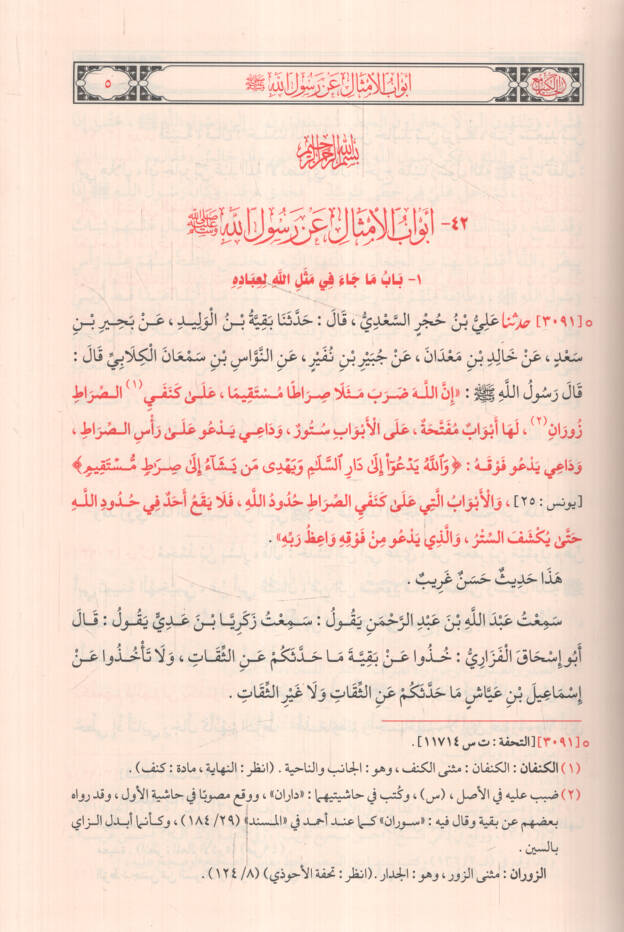 أبواب الأمثال عن رسول الله ﷺ
٥
بسم الله الرحمن الرحيم
٤٢- أبواب الأمثال عن رسول الله ﷺ
١- بَابُ مَا جَاءَ فِي مَثَلِ اللَّهِ لِعِبَادِهِ
○ [٣٠٩١] حدثنا عَلِيُّ بْنُ حُجْرٍ السَّعْدِيُّ ، قَالَ : حَدَّثَنَا بَقِيَّةُ بْنُ الْوَلِيدِ ، عَنْ بَحِيرِ بْنِ
سَعْدٍ ، عَنْ خَالِدِ بْنِ مَعْدَانَ ، عَنْ جُبَيْرِ بْنِ نُفَيْرٍ ، عَنِ النَّوَّاسِ بْنِ سَمْعَانَ الْكِلَابِيِّ قَالَ :
قَالَ رَسُولُ اللَّهِ ﷺ : «إِنَّ اللَّهَ ضَرَبَ مَثَلًا صِرَاطًا مُسْتَقِيمًا ، عَلَى كَنَفَيِ (١) الصِّرَاطِ
زُورَانِ (٢) ، لَهَا أَبْوَابٌ مُفَتَّحَةٌ ، عَلَى الْأَبْوَابِ سُتُورٌ ، وَدَاعِي يَدْعُو عَلَى رَأْسِ الصِّرَاطِ ،
وَدَاعِي يَدْعُو فَوْقَهُ : ﴿وَٱللَّهُ يَدْعُوٓاْ إِلَىٰ دَارِ ٱلسَّلَٰمِ وَيَهْدِى مَن يَشَآءُ إِلَىٰ صِرَٰطٍ مُّسْتَقِيمٍ﴾
[يونس : ٢٥] ، وَالْأَبْوَابُ الَّتِي عَلَى كَنَفَيِ الصِّرَاطِ حُدُودُ اللَّهِ ، فَلَا يَقَعُ أَحَدٌ فِي حُدُودِ اللَّهِ
حَتَّى يُكْشَفَ السِّتْرُ ، وَالَّذِي يَدْعُو مِنْ فَوْقِهِ وَاعِظُ رَبِّهِ» .
هَذَا حَدِيثٌ حَسَنٌ غَرِيبٌ .
سَمِعْتُ عَبْدَ اللَّهِ بْنَ عَبْدِ الرَّحْمَنِ يَقُولُ : سَمِعْتُ زَكَرِيَّا بْنَ عَدِيٍّ يَقُولُ : قَالَ
أَبُو إِسْحَاقَ الْفَزَارِيُّ : خُذُوا عَنْ بَقِيَّةَ مَا حَدَّثَكُمْ عَنِ الثِّقَاتِ ، وَلَا تَأْخُذُوا عَنْ
إِسْمَاعِيلَ بْنِ عَيَّاشٍ مَا حَدَّثَكُمْ عَنِ الثِّقَاتِ وَلَا غَيْرِ الثِّقَاتِ .
○ [٣٠٩١] [التحفة : ت س ١١٧١٤] .
(١) الكنفان : الكنفان : مثنى الكنف ، وهو : الجانب والناحية . (انظر : النهاية ، مادة : كنف) .
(٢) ضبب عليه في الأصل ، (س) ، وكُتب في حاشيتيهما : «داران» ، ووقع مصوبًا في حاشية الأول ، وقد رواه
بعضهم عن بقية وقال فيه : «سوران» كما عند أحمد في «المسند» (٢٩/ ١٨٤) ، وكأنما أبدل الزاي
بالسين .
الزوران : مثنى الزور ، وهو : الجدار . (انظر : تحفة الأحوذي) (٨/ ١٢٤) .